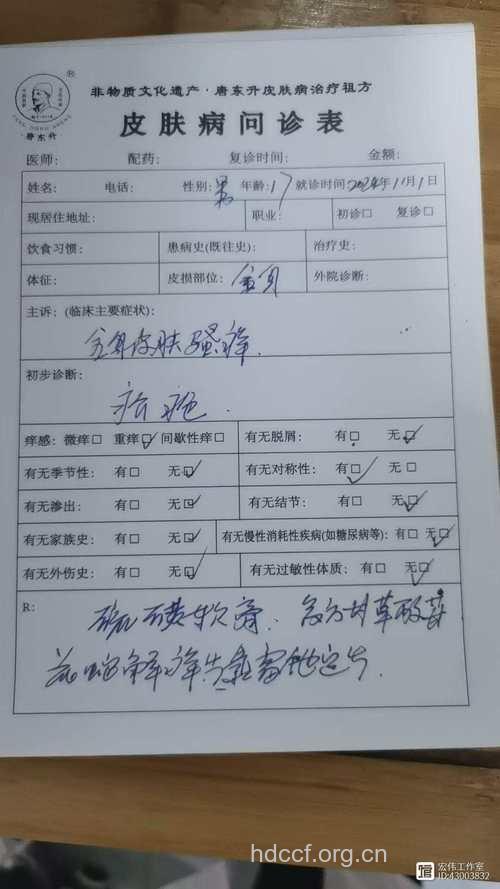 非物质文化遗产·唐东升皮肤病治疗祖方
·唐东升·
皮肤病问诊表
医师: 配药: 复诊时间: 金额:
姓名: 电话: 性别:男 年龄:17 就诊时间2024年11月1日
现居住地址: 职业: 初诊□ 复诊□
饮食习惯: 患病史(既往史): 治疗史:
体征: 皮损部位:全身 外院诊断:
主诉:(临床主要症状):
全身皮肤骚痒.
初步诊断:
疥疮.
痒感: 微痒□ 重痒☑ 间歇性痒□ 有无脱屑: 有□ 无☑
有无季节性: 有□ 无☑ 有无对称性: 有☑ 无□
有无渗出: 有□ 无☑ 有无结节: 有□ 无☑
有无家族史: 有□ 无☑ 有无慢性消耗性疾病(如糖尿病等): 有□ 无☑
有无外伤史: 有□ 无☑ 有无过敏性体质: 有□ 无☑
R: 硫磺软膏、复方甘草酸苷
hdccf.org.cn
宏伟工作室
ID:43003832